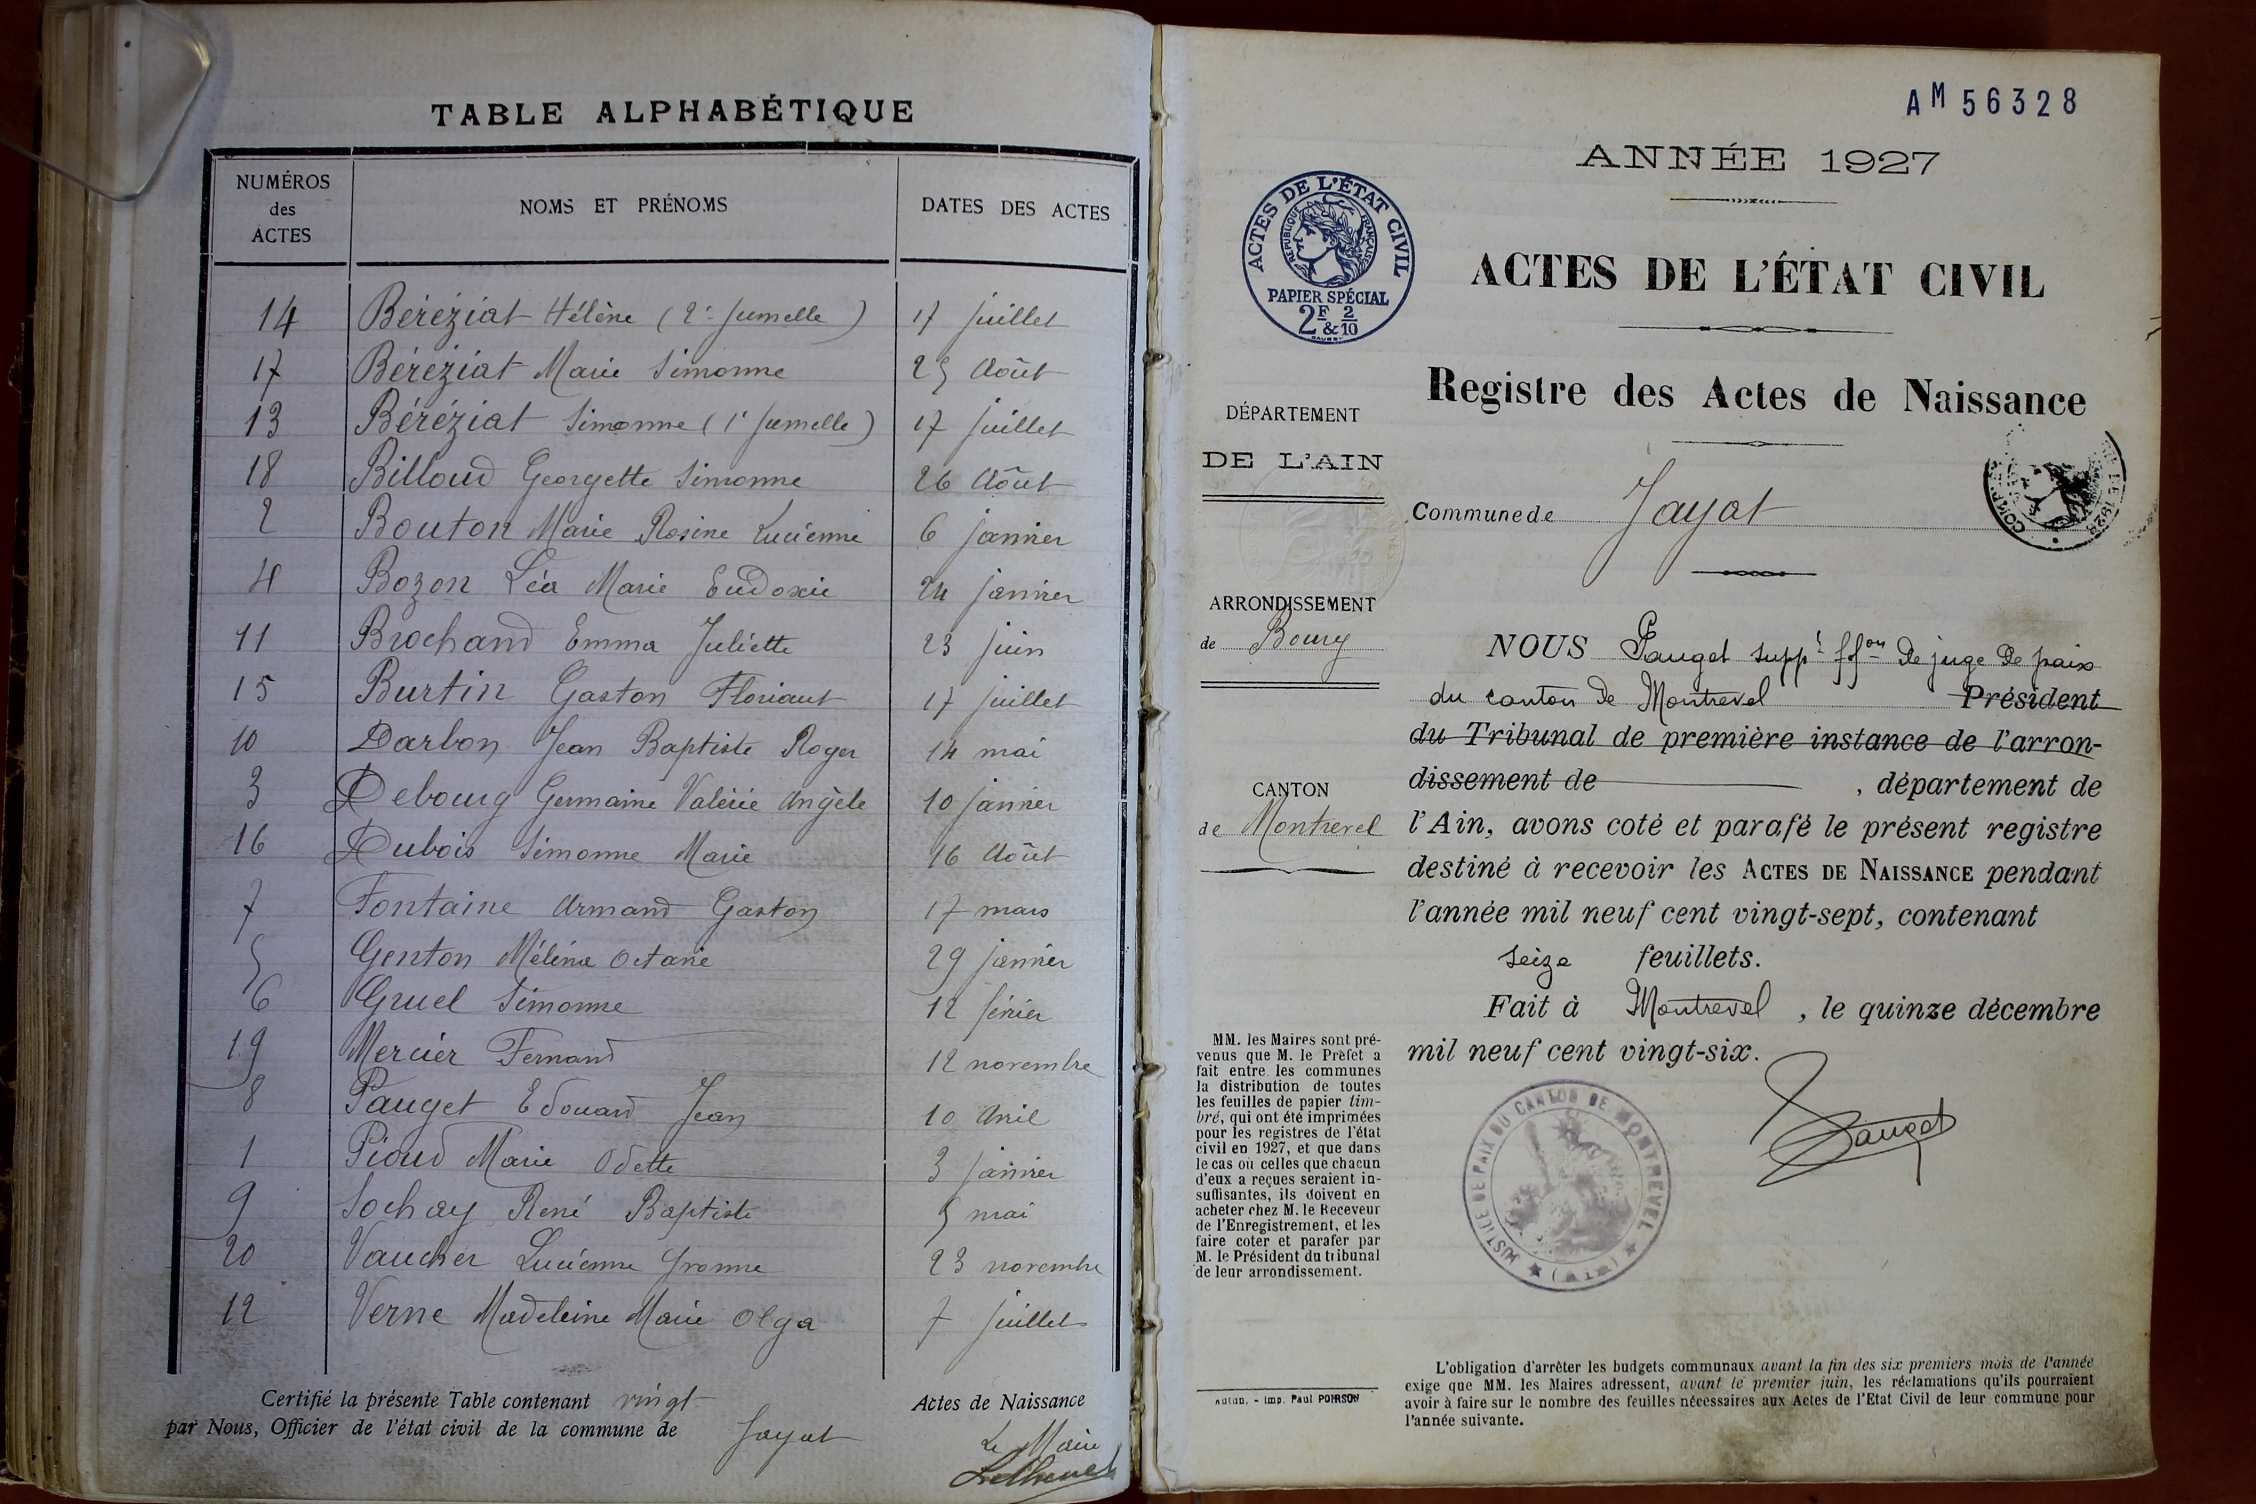 TABLE ALPHABÉTIQUE
NUMÉROS des ACTES NOMS ET PRÉNOMS DATES DES ACTES
14 Béréziat Hélène (2e Jumelle) 17 juillet
17 Béréziat Marie Simonne 25 Août
13 Béréziat Simonne (1e Jumelle) 17 juillet
18 Billoud Georgette Simonne 26 Août
2 Bouton Marie Rosine Lucienne 6 janvier
4 Bozon Léa Marie Eudoxie 24 janvier
11 Brochand Emma Juliette 23 juin
15 Burtin Gaston Floriaut 17 juillet
10 Darbon Jean Baptiste Roger 14 mai
3 Debourg Germaine Valérie Angèle 10 janvier
16 Dubois Simonne Marie 16 Août
7 Fontaine Armand Gaston 17 mars
5 Genton Mélina Octavie 29 janvier
6 Gruel Simonne 12 février
19 Mercier Fernand 12 novembre
8 Pauget Edouard Jean 10 Avril
1 Pioud Marie Odette 3 janvier
9 Sochay René Baptiste 5 mai
20 Vaucher Lucienne Yvonne 23 novembre
12 Verne Madeleine Marie Olga 7 juillet
Certifié la présente Table contenant vingt Actes de Naissance
par Nous, Officier de l'état civil de la commune de Jayat
Le Maire
AM 56328
ANNÉE 1927
ACTES DE L'ÉTAT CIVIL
RÉPUBLIQUE FRANÇAISE
PAPIER SPÉCIAL
2F & 2/10
ACTES DE L'ÉTAT CIVIL
Registre des Actes de Naissance
DÉPARTEMENT
DE L'AIN
Commune de Jayat
ARRONDISSEMENT
de Bourg
CANTON
de Montrevel
NOUS Pauget suppt ffon de juge de paix
du canton de Montrevel Président
du Tribunal de première instance de l'arron-
dissement de , département de
l'Ain, avons coté et parafé le présent registre
destiné à recevoir les ACTES DE NAISSANCE pendant
l'année mil neuf cent vingt-sept, contenant
seize feuillets.
Fait à Montrevel , le quinze décembre
mil neuf cent vingt-six.
Pauget
JUSTICE DE PAIX DU CANTON DE MONTREVEL
(Ain)
MM. les Maires sont pré-
venus que M. le Préfet a
fait entre les communes
la distribution de toutes
les feuilles de papier tim-
bré, qui ont été imprimées
pour les registres de l'état
civil en 1927, et que dans
le cas où celles que chacun
d'eux a reçues seraient in-
suffisantes, ils doivent en
acheter chez M. le Receveur
de l'Enregistrement, et les
faire coter et parafer par
M. le Président du tribunal
de leur arrondissement.
Autun. - Imp. Paul POIRSON
L'obligation d'arrêter les budgets communaux avant la fin des six premiers mois de l'année
exige que MM. les Maires adressent, avant le premier juin, les réclamations qu'ils pourraient
avoir à faire sur le nombre des feuilles nécessaires aux Actes de l'Etat Civil de leur commune pour
l'année suivante.